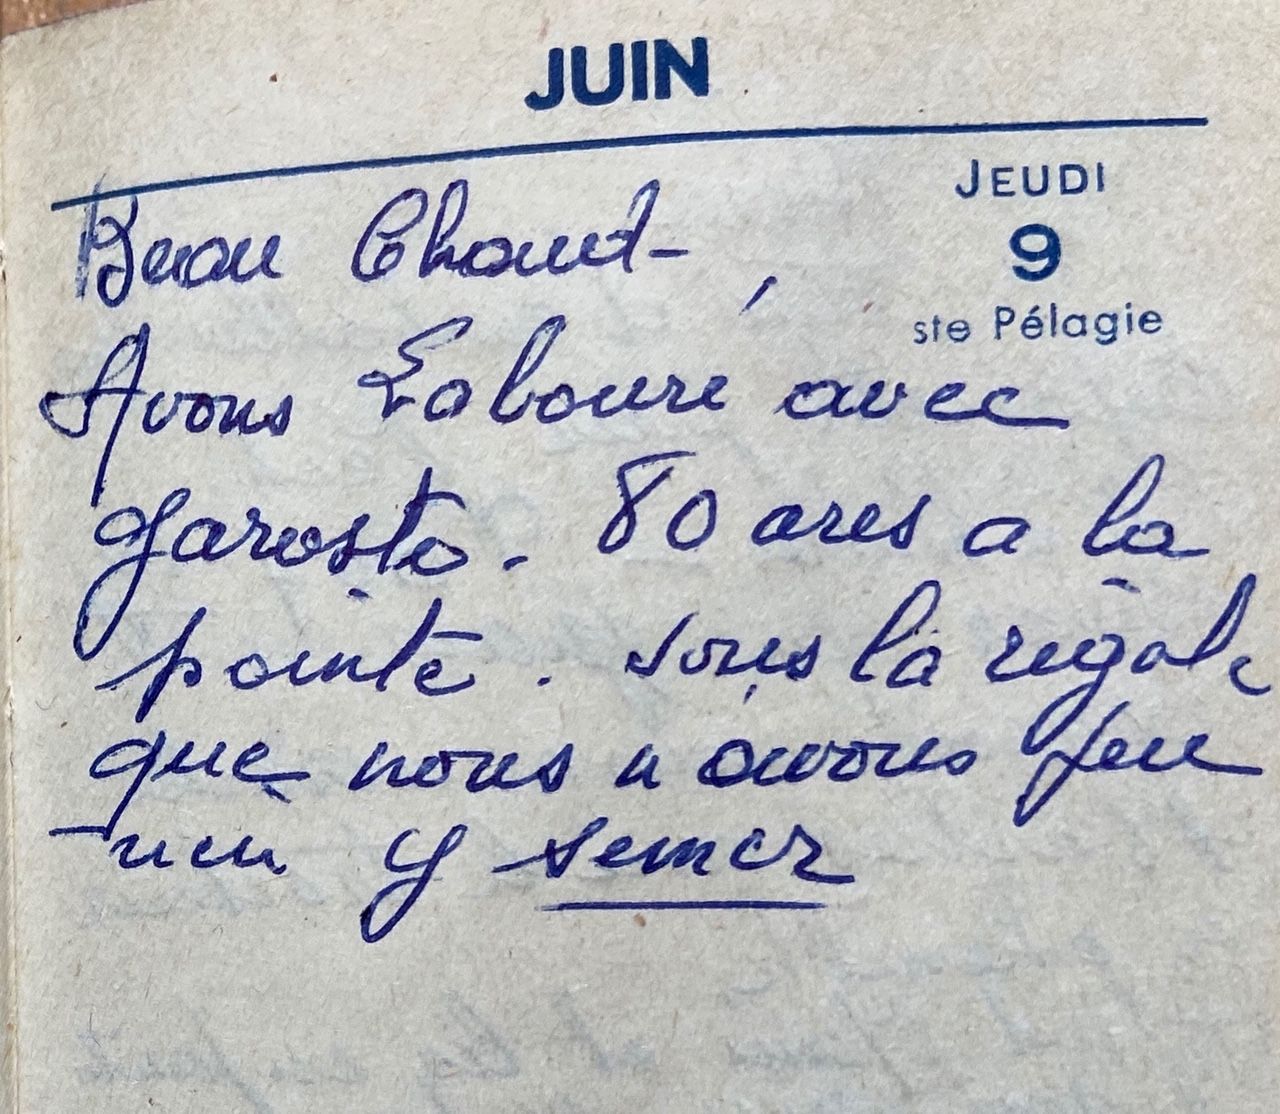 JUIN
JEUDI
9
ste Pélagie
Beau Chaud -
Avons Labouré avec
garosto. 80 ares a la
pointe. sous la rigole
que nous n avons peu
rien y semer